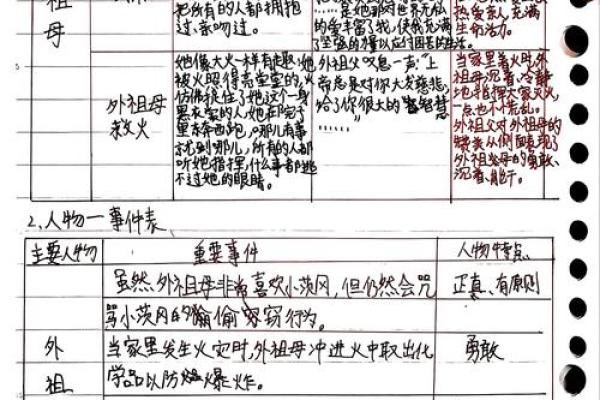 祖
母
把所有的人都拥抱
过、亲吻过。
……是她那对世界无私
的爱丰富了我,使我充满
了坚强的力量以应付困苦的生活。
热爱家人,充满
生命活力。
外祖母
救火
她像大火一样有趣,她
被火照得亮堂堂的,火
仿佛捉住了她这个一身
黑衣裳的人,她在院子
里东奔西跑,哪儿有事
就到哪儿,所有的人都
听她指挥,什么事都逃
不过她的眼睛。
外祖父叹息一声:“上
帝总是对你大发慈悲,
给了你很大的智慧
……
当家里着火时,外
祖母沉着、冷静
地指挥大家灭火,
一点也不慌乱。
外祖父对外祖母的
赞美从侧面表现了
外祖母的勇敢、
沉着、能干。
2、人物一事件表
主要人物 重要事件 人物特点
虽然外祖母非常喜欢小茨冈,但仍然会咒 正直、有原则
骂小茨冈的偷偷窃行为。
外 当家里发生火灾时,外祖母冲进火中取出化 勇敢
祖 学品以防爆炸。